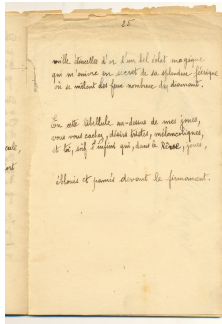 25
mille étincelles d'or d'un bel éclat magique
qui m'ouvre en secret de sa splendeur féerique
où se mêlent des feux nombreux de diamants.
En cette libellule au-dessus de mes joues,
vous vous cachez, désirs tristes, mélancoliques,
et toi, soif d'infini qui, dans le rêve, joues,
éblouis et pâmés devant le firmament.